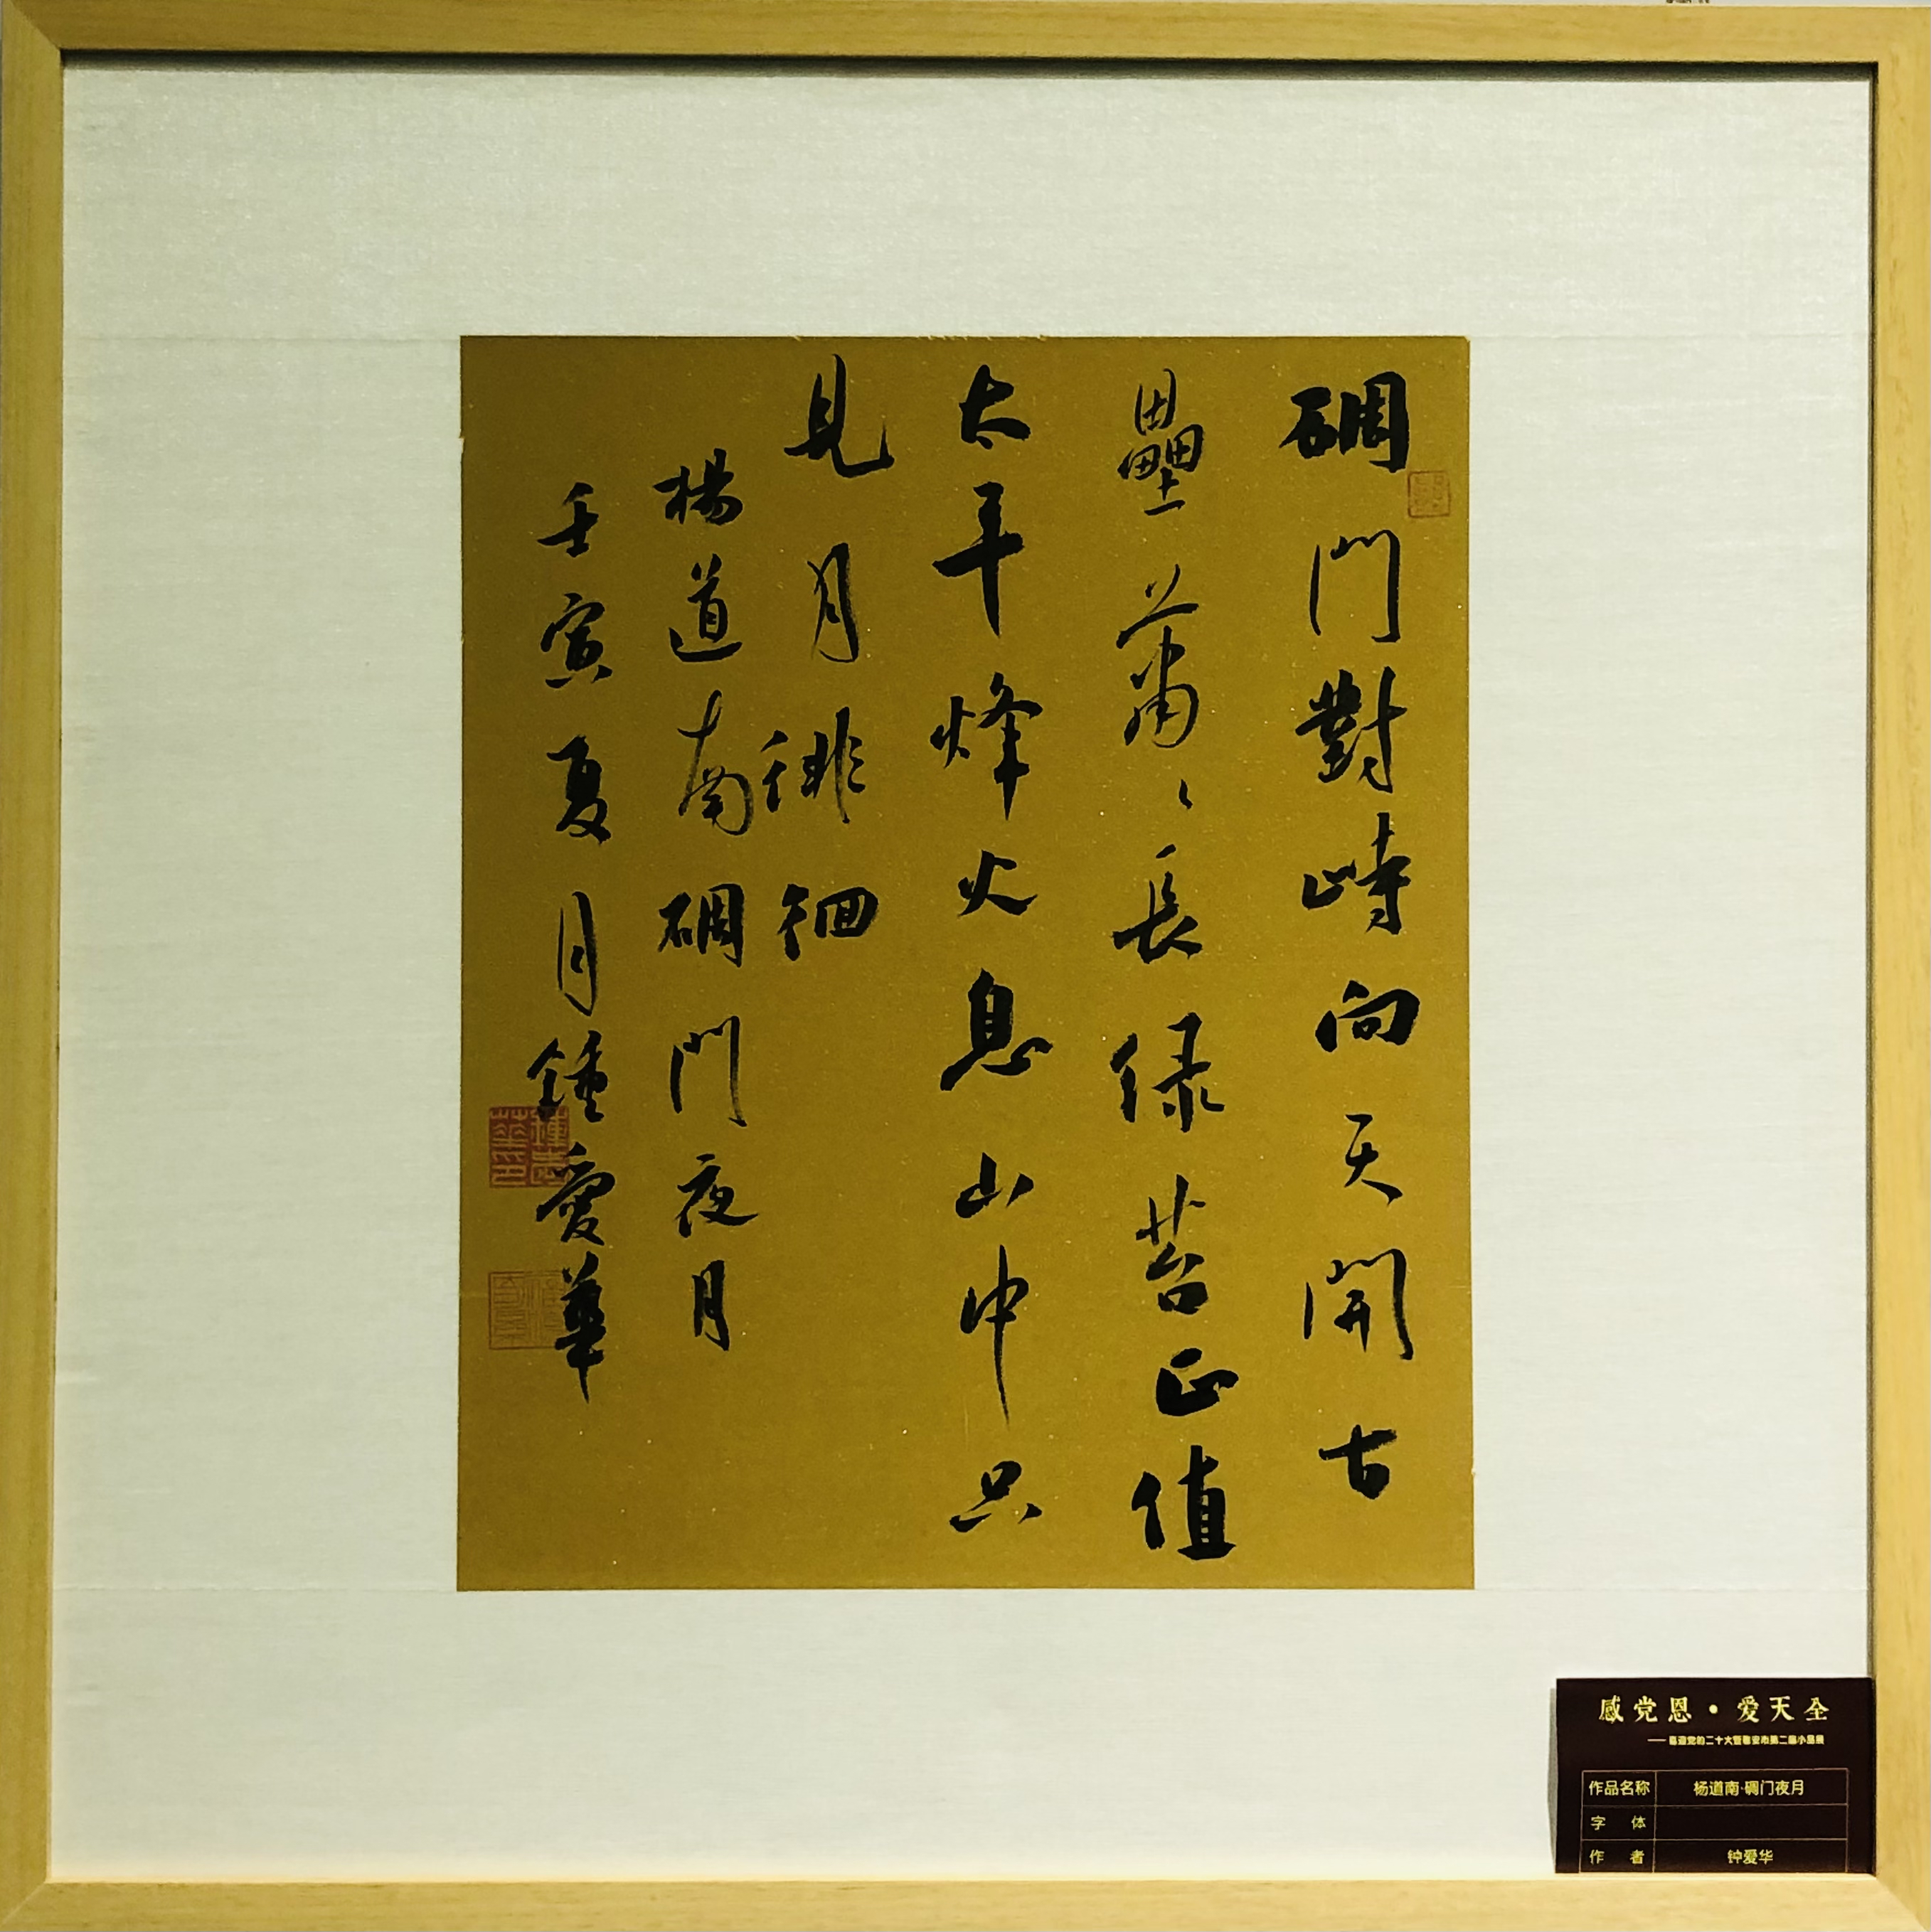 碉門對峙向天開古
壘蕭〻長绿苔正值
太平烽火息山中只
見月徘徊
楊道南碉門夜月
壬寅夏月鍾愛華
感党恩·爱天全
——喜迎党的二十大暨雅安市第二届小品展
作品名称 杨道南·碉门夜月
字 体
作 者 钟爱华